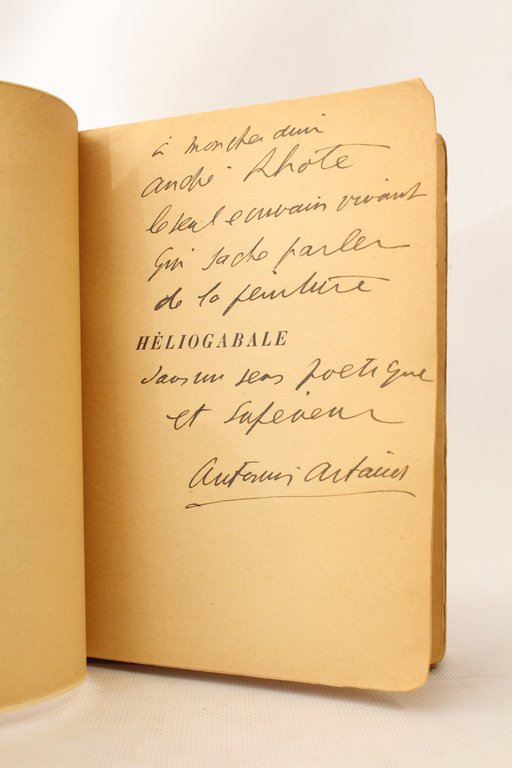 à mon cher ami
andré Lhote
le seul ecrivain vivant
qui sache parler
de la peinture
HÉLIOGABALE
dans un sens poetique
et supérieur
Antonin Artaud